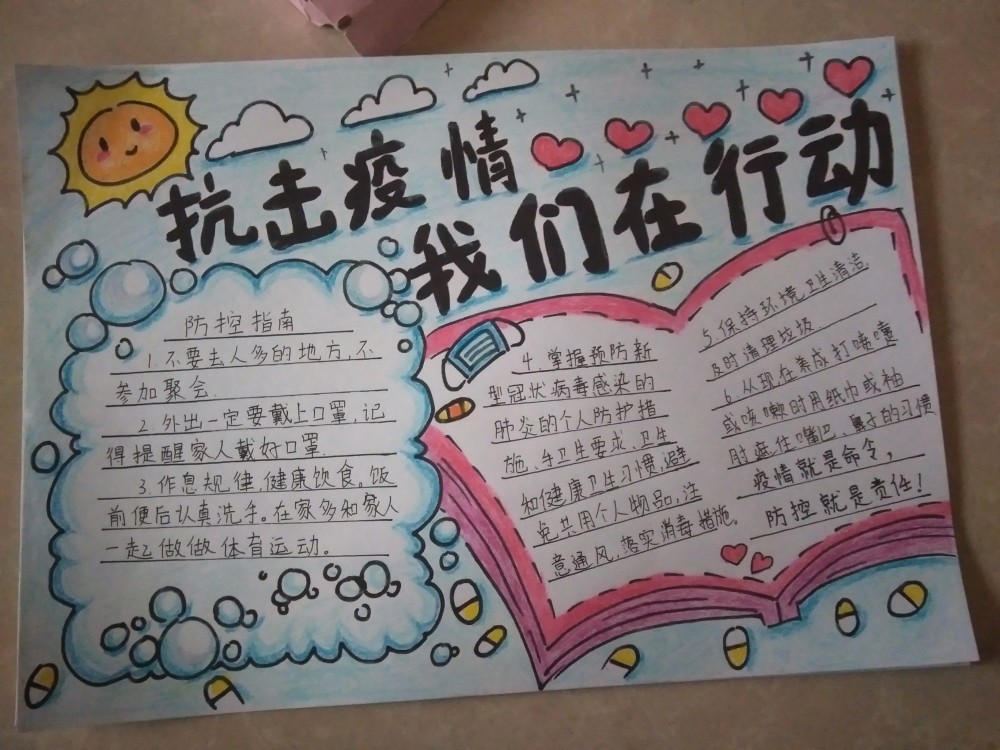 抗击疫情
我们在行动
防控指南
1.不要去人多的地方,不
参加聚会.
2.外出一定要戴上口罩,记
得提醒家人戴好口罩.
3.作息规律,健康饮食。饭
前便后认真洗手。在家多和家人
一起做做体育运动。
4.掌握预防新
型冠状病毒感染的
肺炎的个人防护措
施、手卫生要求、卫生
和健康卫生习惯,避
免共用个人物品,注
意通风,落实消毒措施。
5.保持环境卫生清洁,
及时清理垃圾.
6.从现在养成打喷嚏
或咳嗽时用纸巾或袖
肘遮住嘴巴、鼻子的习惯
疫情就是命令,
防控就是责任!